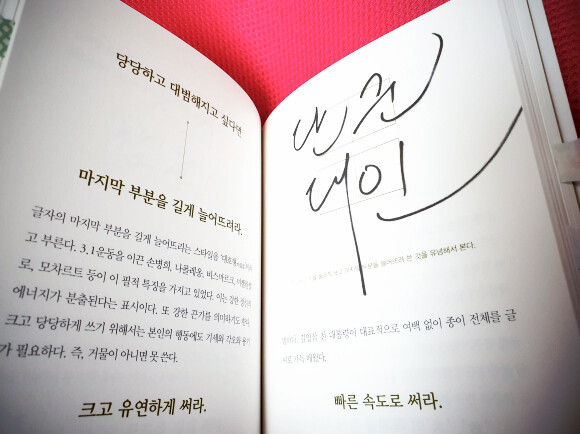 당당하고 대범해지고 싶다면
마지막 부분을 길게 늘어뜨려라.
글자의 마지막 부분을 길게 늘어뜨리는 스타일을
고 부른다. 3.1운동을 이끈 손병희, 나폴레옹, 비스마르크,
로, 모차르트 등이 이 필적 특징을 가지고 있었다. 이는 강한
에너지가 분출된다는 표시이다. 또 강한 끈기를 의미하기도 한다.
크고 당당하게 쓰기 위해서는 본인의 행동에도 기세와 각오와 용기
가 필요하다. 즉, 거물이 아니면 못 쓴다.
크고 유연하게 써라.
대인
부분을 늘어뜨려 쓴 것을 유념해서 본다.
김영삼 전 대통령이 대표적으로 여백 없이 종이 전체를 글
씨로 가득 채웠다.
빠른 속도로 써라.